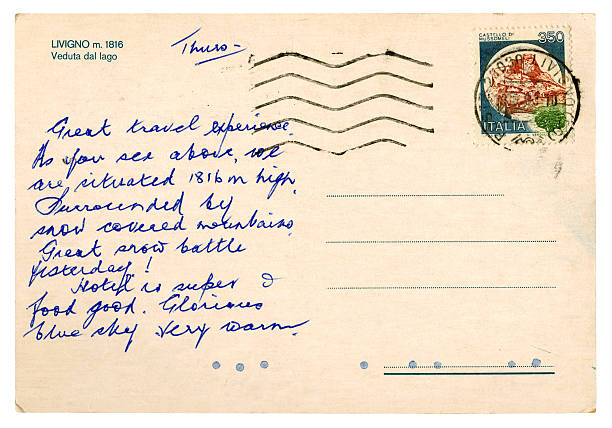 LIVIGNO m. 1816
Veduta dal lago
Thurs-
CASTELLO DI
MUSSOMELI
350
ITALIA
Great travel experience.
As you see above, we
are situated 1816m high
Surrounded by
snow covered mountains.
Great snow battle
yesterday!
Hotel is super &
food good. Glorious
blue sky very warm.